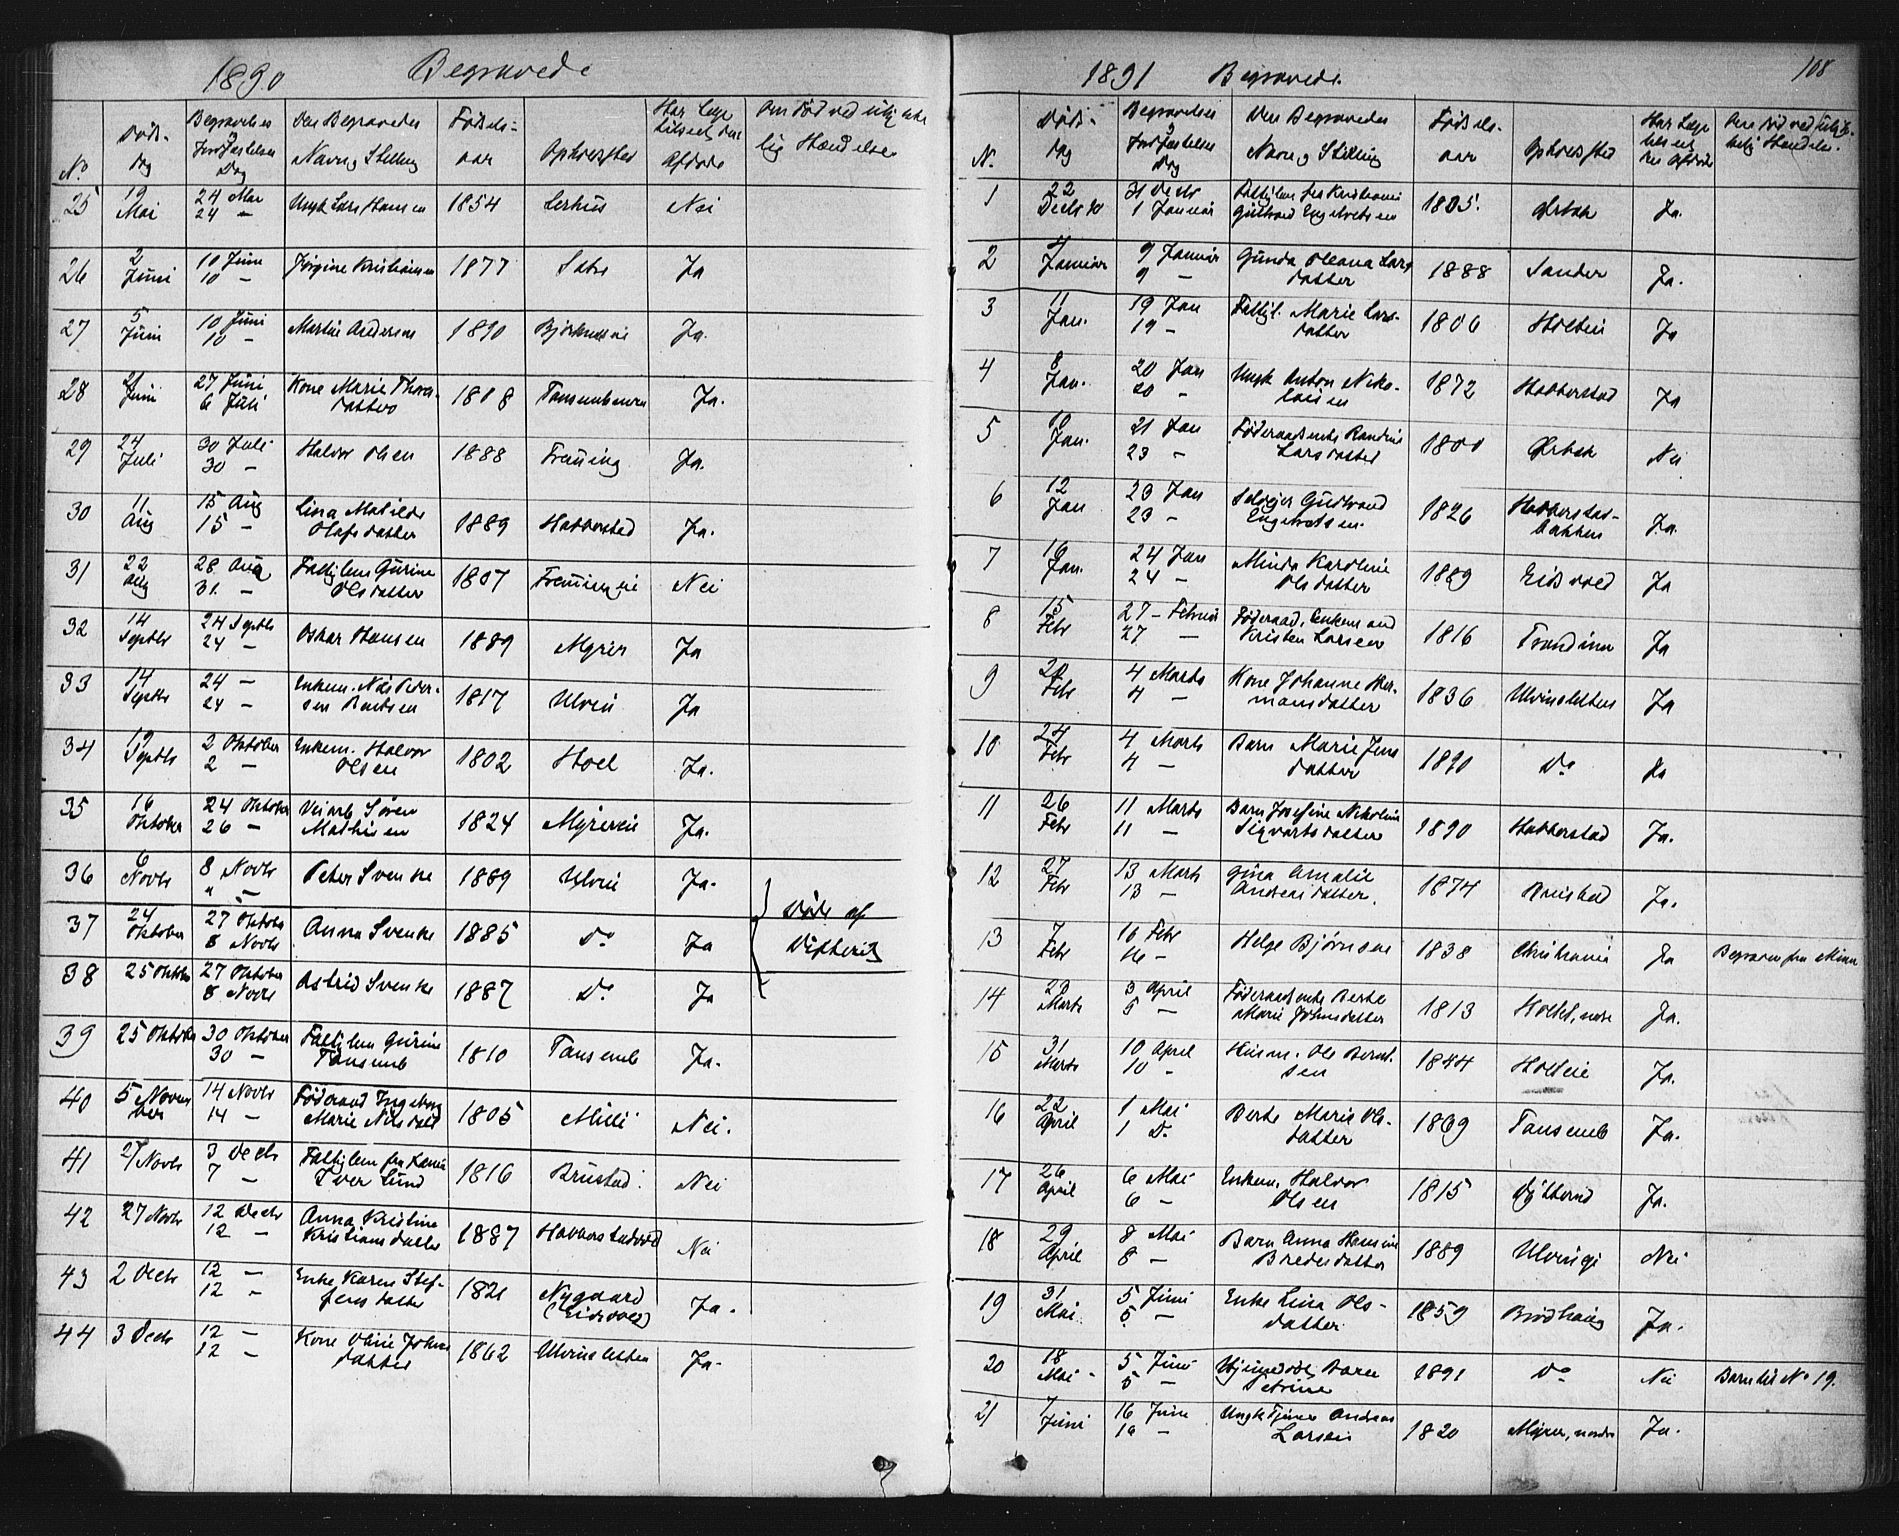 1890 Begravede
No
Døds-
dag
Begravelses
og
Jordfæstelses
Dag
Den Begravedes
Navn og Stilling
Fødsels-
aar
Opholdssted
Har Læge
tilseet den
Afdøde
Om Død ved ulykke-
lig Hændelse
25 19 Mai 24 Mai 24 — Ungk Lars Hansen 1854 Nei
26 2 Juni 10 Juni 10 — Jørgine Kristiansen 1877 Ja
27 5 Juni 10 Juni 10 — Martin Andersen 1890 Ja.
28 21 Juni 27 Juni 6 Juli Kone Marie Thors-
datter 1818 Ja.
29 24 Juli 30 Juli 30 — Halvor Olsen 1888 Frauing Ja.
30 11 Aug 15 Aug 15 — Lina Matilde
Olafsdatter 1889 Habberstad Ja.
31 22 Aug 28 Aug 31. — Fattiglem Gurine
Olsdatter 1807 Nei
32 14 Septbr 24 Septbr 24 — Oskar Hansen 1889 Myrer Ja
33 14 Septbr 24 — 24 — Enkem. Nils Peder-
sen 1817 Ulvin Ja
34 19 Septbr 2 Oktober 2 — Enkem. Halvor
Olsen 1802 Hoel Ja.
35 16 Oktober 24 Oktober 26 — Veiarb Søren
Mathisen 1824 Ja.
36 6 Novbr 8 Novbr " — Peter Svenke 1889 Ulvin Ja.
37 24 Oktober 27 Oktober 8 Novbr Anna Svenke 1885 Do Ja
Døde af
Difterit
38 25 Oktober 27 Oktober 8 Novbr Astrid Svenke 1887 Do Ja
39 25 Oktober 30 Oktober 30 — Fattiglem Gurine
Tansemb 1810 Tansemb Ja.
40 5 Novem
ber 14 Novbr 14 — Føderaad Ingeborg
Marie Nilsdatt 1805 Milli Nei.
41 27 Novbr 3 Decbr 7 — Fattiglem fra
Iver Lund 1816 Brustad. Nei
42 27 Novbr 12 Decbr 12 — Anna Kristine
Kristiansdatter 1887 Nei
43 2 Decbr 12 — 12 — Enke Karen Stef-
fensdatter 1821 Nygaard
(Eidsvold) Ja.
44 3 Decbr 12 — 12 — Kone Oline Johns
datter 1862 Ulvinsletten Ja.
1891 Begravede.
108
N.
Døds-
dag
Begravelses
og
Jordfæstelses
Dag
Den Begravedes
Navn og Stilling
Fødsels-
aar
Opholdssted
Har Læge
tilseet
den Afdøde
Om Død ved ulyk-
kelig Hændelse.
1 22 Decbr 90 31 Decbr 1 Januar Fattiglem fra Kristiania
Gulbrand Engebretsen 1805. Ørbæk Ja.
2 4 Januar 9 Januar 9 — Gunda Oleana Lars
datter 1888 Sander Ja.
3 11 Jan. 19 Jan 19 — Fattigl. Marie Lars-
datter 1806 Ja
4 8 Jan. 20 Jan 20 — Ungk Anton Niko-
laisen 1872 Habberstad Ja
5 10 Jan. 21 Jan 23 — Føderaadsenke Randine
Larsdatter 1800 Ørbæk Nei
6 12 Jan 23 Jan 23 — Selveier Gudbrand
Engebretsen. 1826 Habberstad-
bakken Ja.
7 16 Jan. 24 Jan 24 — Minda Karoline
Olsdatter 1889 Eidsvold Ja
8 15 Febr 27 — Februar 27 — Føderaad, Enkemand
Kristen Larsen 1816 Ja
9 20 Febr 4 Marts 4 — Kone Johanne Her-
mansdatter 1836 Ulvinsletten Ja
10 24 Febr 4 Marts 4 — Barn Marie Jens
datter 1890 Do Ja
11 26 Febr 11 Marts 11 — Barn Josefine Nikoline
Sigvartsdatter 1890 Habberstad Ja.
12 27 Febr 13 Marts 13 — Gina Amalie
Andreasdatter. 1874 Ja.
13 7 Febr 16 Febr 16 — Helge Bjørnsen 1838 Christiania Ja Begraven fra Minne
14 23 Marts 3 April 5 — Føderaadsenke Berte
Marie Johnsdatter 1813 Ja.
15 31 Marts 10 April 10 — Husm. Ole Bernt-
sen 1844 Ja.
16 22 April 1 Mai 1 D. Berte Marie Ols-
datter 1869 Tansemb Ja.
17 26 April 6 Mai 6 — Enkem. Halvor
Olsen 1815 Ja.
18 29 April 8 Mai 8 — Barn Anna Hansine
Bredesdatter 1889 Nei
19 31 Mai 5 Juni 5 — Enke Lina Ols-
datter 1859 Brødhaug Ja.
20 18 Mai - 5 Juni 5 — Hjemmedøbt Barn
Petrine 1891 Do Nei Barn til No 19.
21 7 Juni 16 Juni 16 — Ungk Tjener Andreas
Larsen 1820 Myrer, nordre Ja.